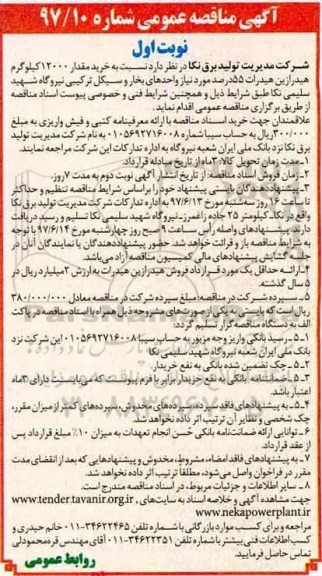 آگهی مناقصه عمومی شماره ۹۷/۱۰
نوبت اول
شرکت مدیریت تولید برق نکا در نظر دارد نسبت به خرید مقدار ۱۲۰۰۰ کیلوگرم
هیدرازین هیدرات ۵۵درصد مورد نیاز واحدهای بخار و سیکل ترکیبی نیروگاه شهید
سلیمی نکا طبق شرایط ذیل و همچنین شرایط فنی و خصوصی پیوست اسناد مناقصه
از طریق برگزاری مناقصه عمومی اقدام نماید.
علاقمندان جهت خرید اسناد مناقصه با ارائه معرفینامه کتبی و فیش واریزی به مبلغ
۳۰۰/۰۰۰ریال به حساب سیبا شماره ۰۱۰۵۶۹۲۷۱۶۰۰۸ به نام شرکت مدیریت تولید
برق نکا نزد بانک ملی ایران شعبه نیروگاه به اداره تدارکات این شرکت مراجعه نمایند.
۱-مدت زمان تحویل کالا: ۳ماه از تاریخ مبادله قرارداد.
۲-زمان فروش اسناد مناقصه: از تاریخ انتشار آگهی نوبت دوم به مدت ۷روز.
۳-پیشنهاددهندگان بایستی پیشنهاد خود را براساس شرایط مناقصه تنظیم و حداکثر
تا ساعت ۱۶ روز سه‌شنبه مورخ ۹۷/۶/۱۳ به اداره تدارکات شرکت مدیریت تولید برق نکا
واقع در نکا- کیلومتر ۲۵ جاده زاغمرز- نیروگاه شهید سلیمی نکا تسلیم و رسید دریافت
دارند. پیشنهادهای واصله رأس ساعت ۹ صبح روز چهارشنبه مورخ ۹۷/۶/۱۴ با توجه
به شرایط مناقصه باز و قرائت خواهد شد. حضور پیشنهاددهندگان یا نمایندگان آنان در
جلسه گشایش پیشنهادهای مالی کمیسیون مناقصه آزاد می‌باشد.
۴-ارائه حداقل یک مورد قرارداد فروش هیدرازین هیدرات به ارزش ۲میلیارد ریال در
۵ سال گذشته.
۵- سپرده شرکت در مناقصه: مبلغ سپرده شرکت در مناقصه معادل ۳۸۰/۰۰۰/۰۰۰
ریال است که بایستی به یکی از صورت‌های مشروحه ذیل همراه با اسناد مناقصه در پاکت
الف به دستگاه مناقصه‌گزار تسلیم گردد:
۵-۱- رسید بانکی واریز وجه مزبور به حساب سیبا ۰۱۰۵۶۹۲۷۱۶۰۰۸ این شرکت نزد
بانک ملی ایران شعبه نیروگاه شهید سلیمی نکا
۵-۲- چک تضمین شده بانکی به نفع خریدار.
۵-۳- ضمانتنامه بانکی به نفع خریدار برابر با فرم پیوست که می‌بایست دارای ۳ماه
اعتبار باشد.
۵-۴- به پیشنهادهای فاقد سپرده، سپرده‌های مخدوش، سپرده‌های کمتر از میزان مقرر،
چک شخصی و نظایر آن ترتیب اثر داده نخواهد شد.
۶- توانایی ارائه ضمانتنامه بانکی حسن انجام تعهدات به میزان ۱۰٪ مبلغ قرارداد پس
از عقد قرارداد.
۷- به پیشنهادهای فاقد امضاء، مشروط، مخدوش و پیشنهادهایی که بعد از انقضای مدت
مقرر در فراخوان واصل می‌شود، مطلقاً ترتیب اثر داده نخواهد شد.
۸- سایر اطلاعات و جزئیات مربوط، در اسناد مناقصه مندرج است.
جهت مشاهده آگهی و خلاصه اسناد به سایت‌های www.tender.tavanir.org.ir ,
www.nekapowerplant.ir
مراجعه و برای کسب موارد بازرگانی با شماره تلفن ۳۴۶۲۲۴۶۵-۰۱۱ خانم حیدری و
کسب اطلاعات فنی بیشتر با شماره تلفن ۳۴۶۲۲۳۵۱-۰۱۱ آقای مهندس قره‌محمودلی
تماس حاصل فرمایید.
روابط عمومی